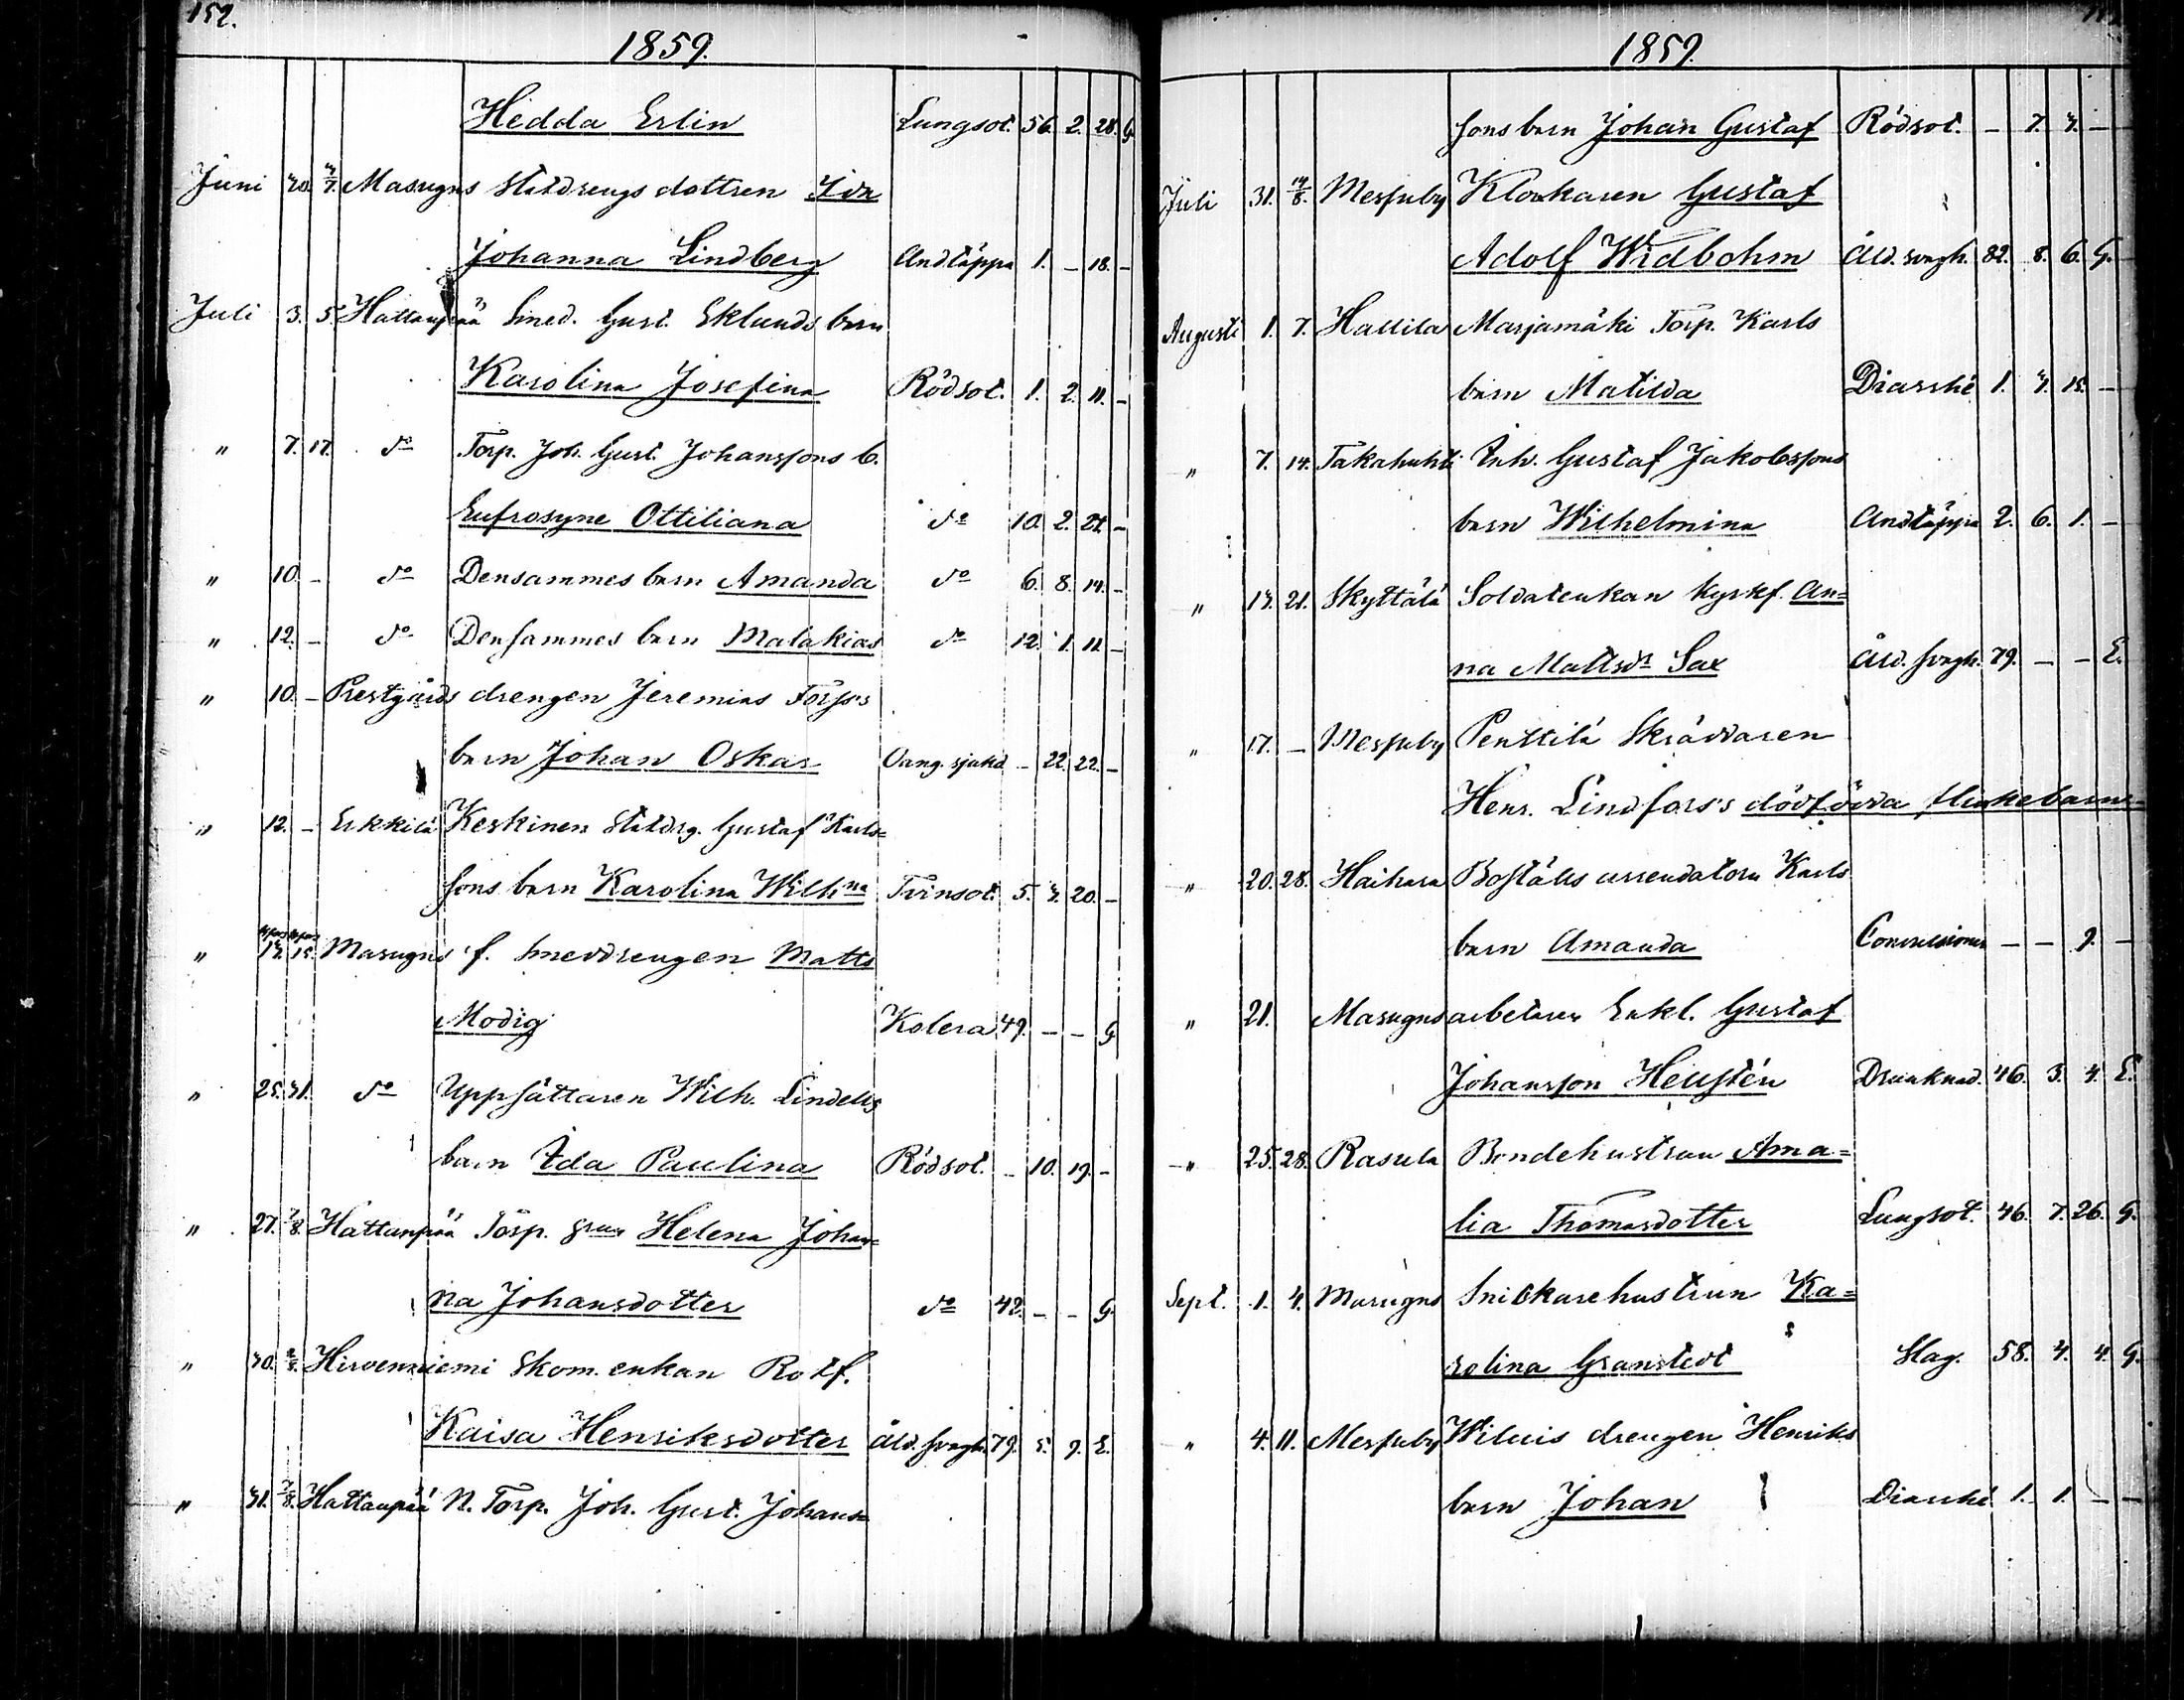 152.
1859.
Hedda Erlin Lungsot. 56. 2. 28. G.
Juni 30. 3/7. Masugns statdrengs dottren Ida
Johanna Lindberg Andtäppa 1. – 18. –
Juli 3. 5. Hattanpää Smed. Gust. Eklunds barn
Karolina Josefina Rödsot. 1. 2. 11. –
" 7. 17. do Torp. Joh. Gust. Johanssons b.
Eufrosyne Ottiliana do 10. 2. 21. –
" 10. – do Densammes barn Amanda do 6. 8. 14. –
" 12. – do Densammes barn Malakias do 12. 1. 11. –
" 10. – Prestgårds drengen Jeremias Forss's
barn Johan Oskar Oang. sjukd – 22. 22. –
" 12. – Erkkilä Keskinen statdrg. Gustaf Karls=
sons barn Karolina Wilhna Tvinsot. 5. 3. 20. –
" 13. 15. Masugns f. smeddrengen Matts
Modig Kolera 49. – – G.
" 25. 31. do Uppsättaren Wilh. Lindells
barn Ida Paulina Rödsot. – 10. 19. –
" 27. 7/8. Hattanpää Torp. Helena Johan=
na Johansdotter do 42. – – G.
" 30. Hirvenniemi Skom. enkan Rotf.
Kaisa Henriksdotter Åld. svagh. 79. 5. 9. E.
" 31. 7/8. Hattanpää N. Torp. Joh. Gust. Johans=
1859.
sons barn Johan Gustaf Rödsot. – 7. 3. –
Juli 31. 14/8. Messuby Klockaren Gustaf
Adolf Widbohm Åld. svagh. 82. 8. 6. G.
Augusti 1. 7. Hallila Marjamäki Torp. Karls
barn Matilda Diarrhé 1. 3. 15. –
" 7. 14. Takahuhti Inh. Gustaf Jakobssons
barn Wilhelmina Andtäppa 2. 6. 1. –
" 13. 21. Skyttälä Soldatenkan Kyrkf. An=
na Mattsdr Sax Åld. svagh. 79. – – E.
" 17. – Messuby Penttilä Skräddaren
Henr. Lindfors's dödfödda flickebarn
" 20. 28. Haihara Boställs arrendatorn Karls
barn Amanda Convulsioner – – 9. –
" 21. Masugns arbetaren Enkl. Gustaf
Johansson Hellstén Drunknad. 46. 3. 4. E.
" 25. 28. Rasula Bondehustrun Ama=
lia Thomasdotter Lungsot. 46. 7. 26. G.
Sept. 1. 4. Masugns Snickarehustrun Ka=
rolina Granstedt Slag. 58. 4. 4. G.
" 4. 11. Messuby Wiluis drengen Henriks
barn Johan Diarrhé 1. 1. – –